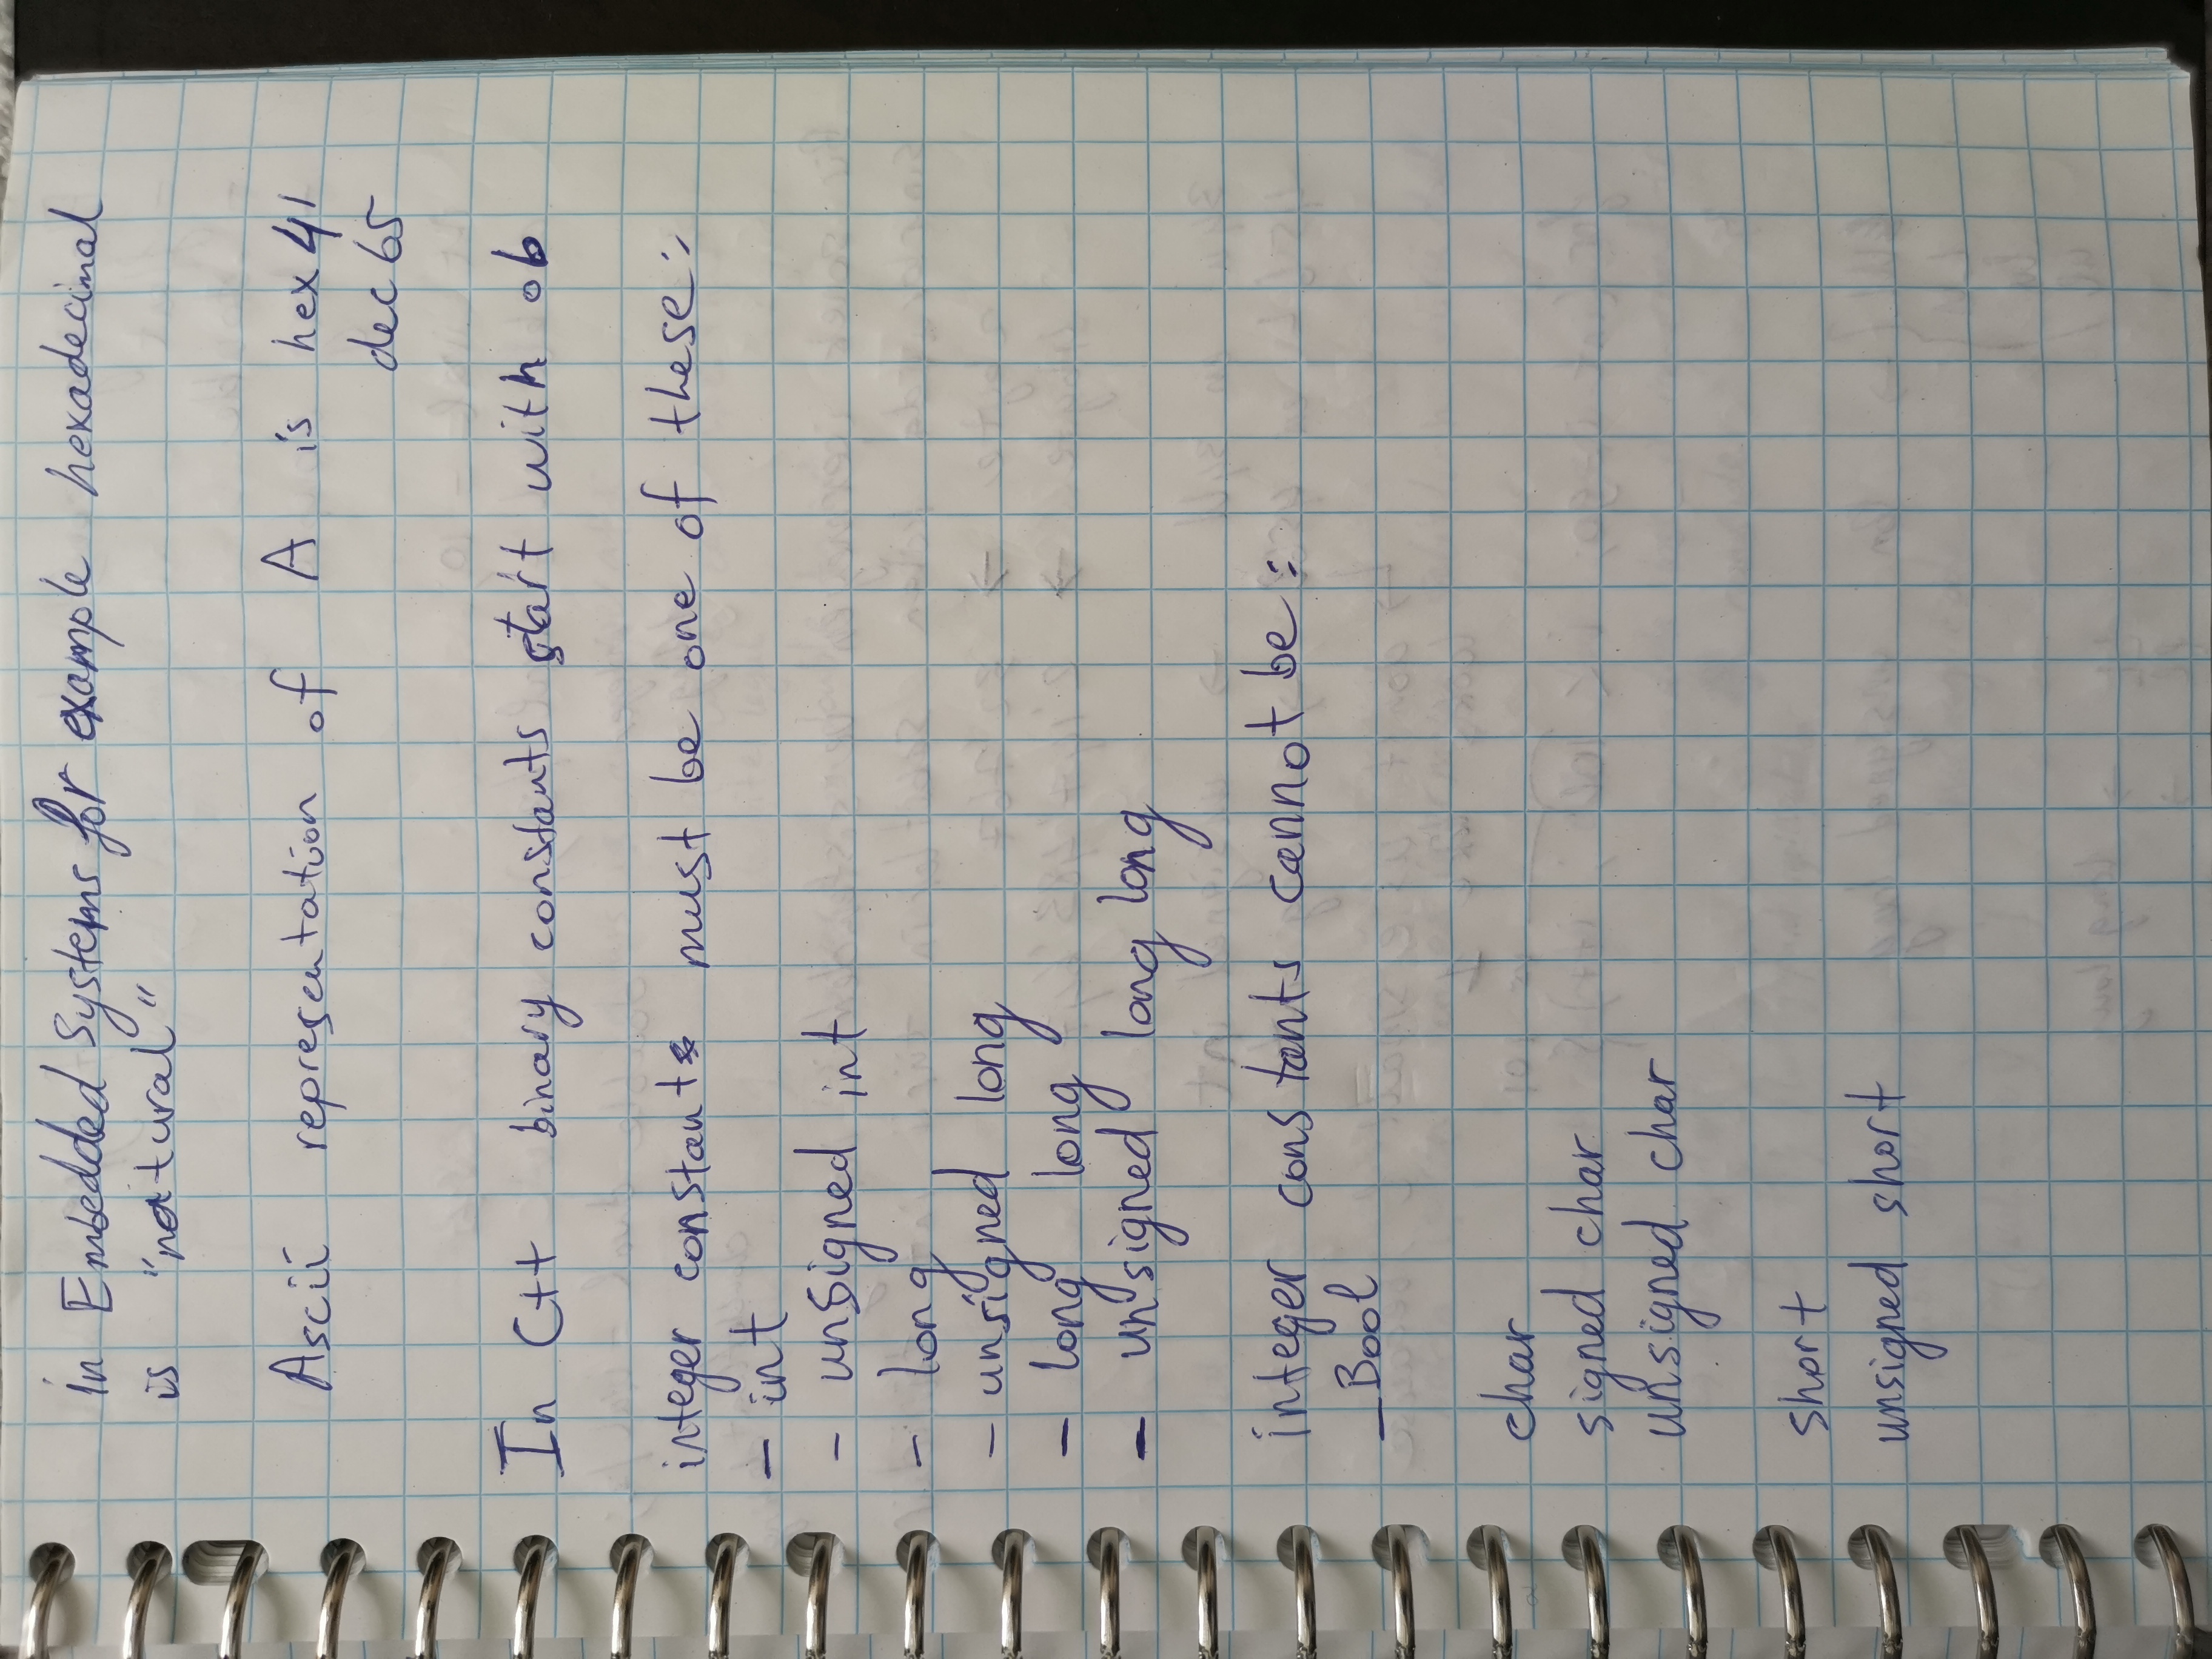 in Embedded Systems for example hexadecimal
is "natural"
Ascii representation of A is hex 41
dec 65
In C++ binary constants start with 0b
integer constants must be one of these:
- int
- unsigned int
- long
- unsigned long
- long long
- unsigned long long
integer constants cannot be:
_Bool
char
signed char
unsigned char
short
unsigned short